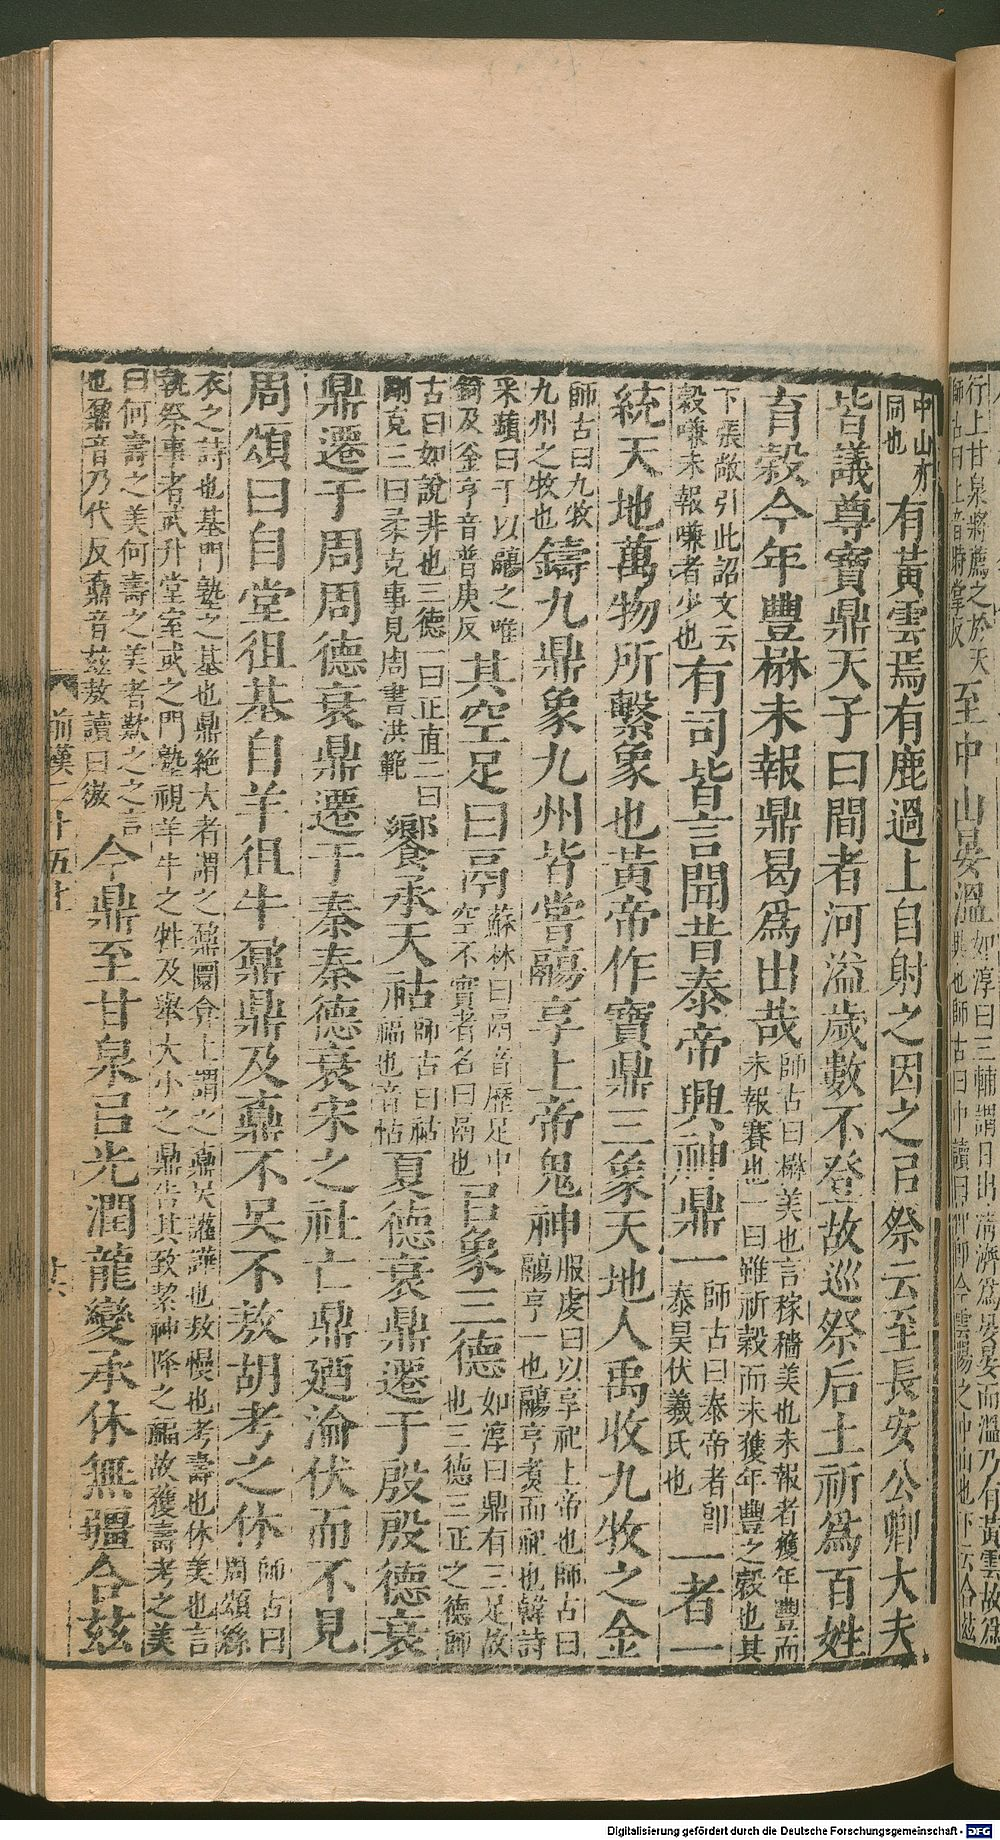 行上甘泉將薦之於天
師古曰上音時掌反
至中山晏溫
如淳曰三輔謂日出清濟爲晏晏而溫乃有黃雲故爲
異也師古曰中讀曰仲卽今雲陽之中山也下云合茲
中山亦
同也
有黃雲焉有鹿過上自射之因之㠯祭云至長安公卿大夫
皆議尊寶鼎天子曰間者河溢歲數不登故巡祭后土祈爲百姓
育穀今年豐楙未報鼎曷爲出哉
師古曰楙美也言稼穡美也未報者獲年豐而
未報賽也一曰雖祈穀而未獲年豐之穀也其
下張敞引此詔文云
穀嗛未報嗛者少也
有司皆言聞昔泰帝興神鼎一
師古曰泰帝者卽
泰昊伏羲氏也
一者一
統天地萬物所繫象也黃帝作寶鼎三象天地人禹收九牧之金
師古曰九牧
九州之牧也
鑄九鼎象九州皆嘗鬺享上帝鬼神
服虔曰以享祀上帝也師古曰
鬺亨一也鬺亨煮而祀也韓詩
采蘋曰于以鬺之唯
錡及釜亨音普庚反
其空足曰鬲
蘇林曰鬲音歷足中
空不實者名曰鬲也
㠯象三德
如淳曰鼎有三足故
也三德三正之德師
古曰如說非也三德一曰正直二曰
剛克三曰柔克事見周書洪範
饗承天祜
師古曰祜
福也音怙
夏德衰鼎遷于殷殷德衰
鼎遷于周周德衰鼎遷于秦秦德衰宋之社亡鼎廼淪伏而不見
周頌曰自堂徂基自羊徂牛鼐鼎及鼒不吳不敖胡考之休
師古曰
周頌絲
衣之詩也基門塾之基也鼎絶大者謂之鼐圜弇上謂之鼒吳讙譁也敖慢也考壽也休美也言
執祭事者或升堂室或之門塾視羊牛之牲及舉大小之鼎告其致絜神降之福故獲壽考之美
曰何壽之美何壽之美者歎之之言
也鼐音乃代反鼒音茲敖讀曰傲
今鼎至甘泉㠯光潤龍變承休無疆合茲
前漢二十五上
廿六
Digitalisierung gefördert durch die Deutsche Forschungsgemeinschaft - DFG